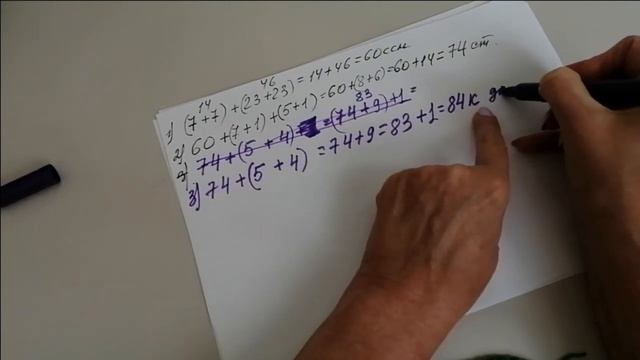 14 46
1) (7+7)+(23+23)=14+46=60ссл
2) 60+(7+1)+(5+1)=60+(8+6)=60+14=74 ст.
83
74+(5+4) =(74+9)+1=
3) 74+(5+4) =74+9=83+1=84к